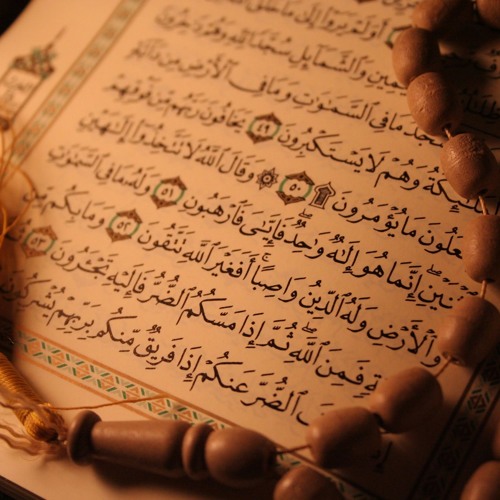 أَوَلَمْ يَرَوْا۟ إِلَىٰ مَا خَلَقَ
وَٱلشَّمَآئِلِ سُجَّدًا لِّلَّهِ وَهُمْ دَٰخِرُونَ
مَا فِى ٱلسَّمَٰوَٰتِ وَمَا فِى ٱلْأَرْضِ مِن دَآبَّةٍ
وَهُمْ لَا يَسْتَكْبِرُونَ ٤٩ يَخَافُونَ رَبَّهُم مِّن فَوْقِهِمْ
مَا يُؤْمَرُونَ ۩ ٥٠ ۞ وَقَالَ ٱللَّهُ لَا تَتَّخِذُوٓا۟ إِلَٰهَيْنِ
إِنَّمَا هُوَ إِلَٰهٌ وَٰحِدٌ ۖ فَإِيَّٰىَ فَٱرْهَبُونِ ٥١ وَلَهُۥ مَا فِى ٱلسَّمَٰوَٰتِ
وَٱلْأَرْضِ وَلَهُ ٱلدِّينُ وَاصِبًا ۚ أَفَغَيْرَ ٱللَّهِ تَتَّقُونَ ٥٢ وَمَا بِكُم مِّن
فَمِنَ ٱللَّهِ ۖ ثُمَّ إِذَا مَسَّكُمُ ٱلضُّرُّ فَإِلَيْهِ تَجْـَٔرُونَ ٥٣
ٱلضُّرَّ عَنكُمْ إِذَا فَرِيقٌ مِّنكُم بِرَبِّهِمْ يُشْرِكُونَ